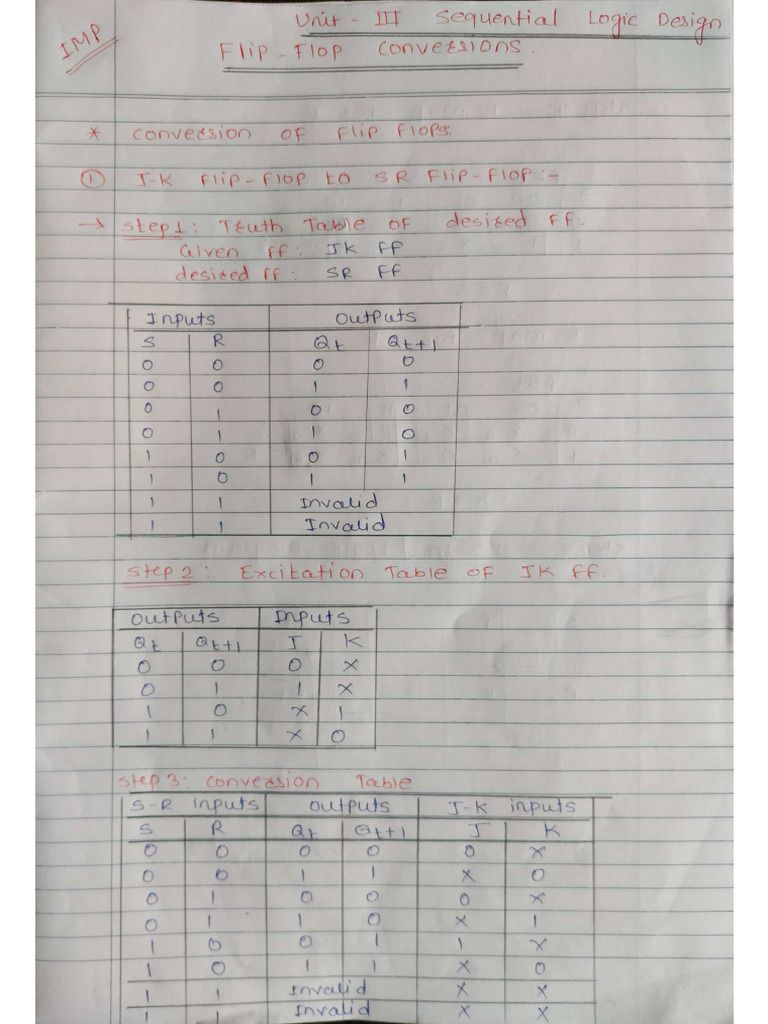 IMP
Unit - III Sequential Logic Design
Flip - Flop conversions.
* conversion of Flip Flops.
① J-K Flip-Flop to SR Flip-Flop :-
→ Step 1 : Truth Table of desired FF.
Given FF : JK FF
desired FF : SR FF
Inputs Outputs
S R Qt Qt+1
0 0 0 0
0 0 1 1
0 1 0 0
0 1 1 0
1 0 0 1
1 0 1 1
1 1 Invalid
1 1 Invalid
Step 2 : Excitation Table of JK FF.
Outputs Inputs
Qt Qt+1 J K
0 0 0 X
0 1 1 X
1 0 X 1
1 1 X 0
Step 3: Conversion Table
S-R inputs outputs J-K inputs
S R Qt Qt+1 J K
0 0 0 0 0 X
0 0 1 1 X 0
0 1 0 0 0 X
0 1 1 0 X 1
1 0 0 1 1 X
1 0 1 1 X 0
1 1 Invalid X X
1 1 Invalid X X